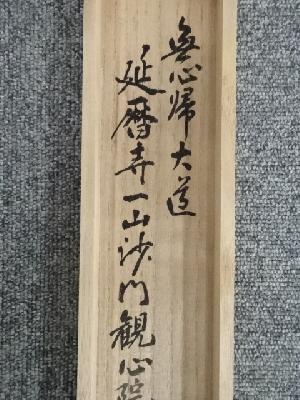 無心帰大道
延暦寺一山沙門観心院